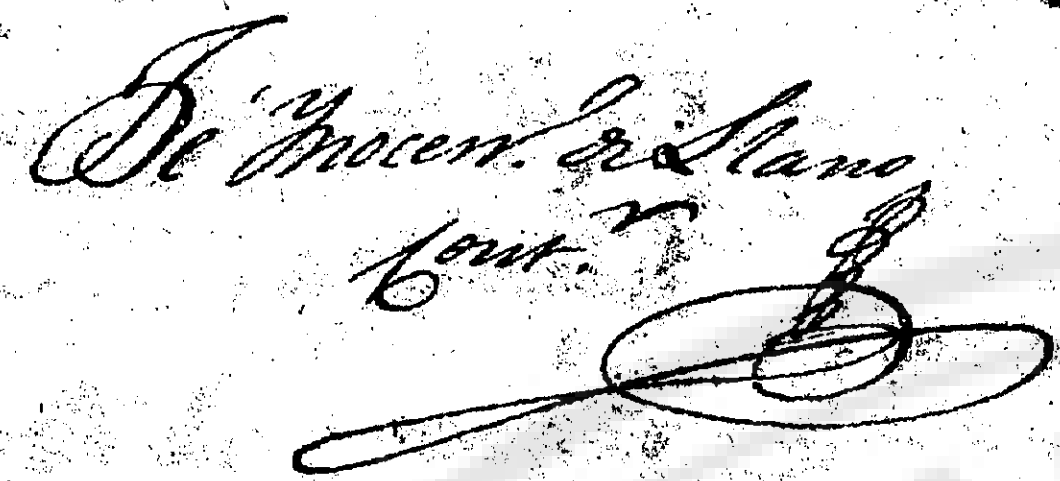 De Ynocen. de Llano
Cont.r